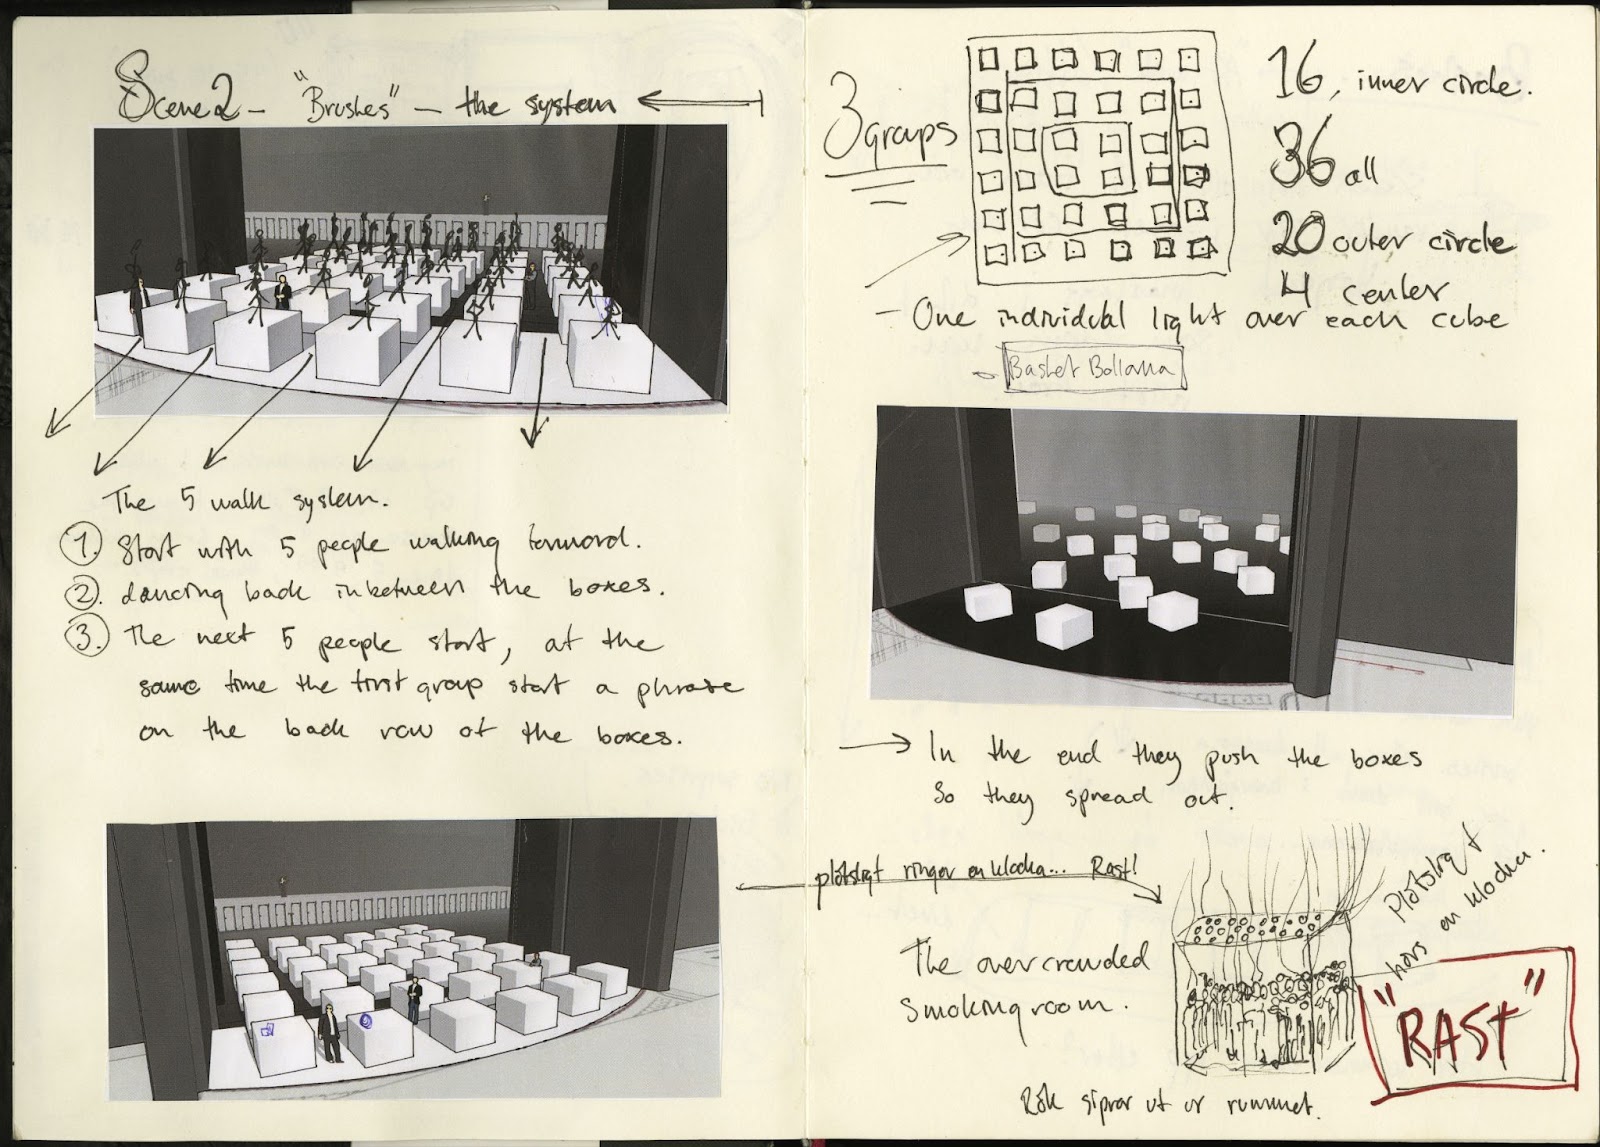 Scene 2 - "Brushes" - the system
The 5 walk system.
1. Start with 5 people walking forward.
2. dancing back inbetween the boxes.
3. The next 5 people start, at the
same time the first group start a phrase
on the back row of the boxes.
3 groups
16, inner circle.
36 all
20 outer circle
4 center
- One individual light over each cube
Basket Bollarna
In the end they push the boxes
So they spread out.
plötsligt ringer en klocka... Rast!
The overcrowded
smokingroom.
Plötsligt
hörs en klocka.
"RAST"
Rök siprar ut ur rummet.